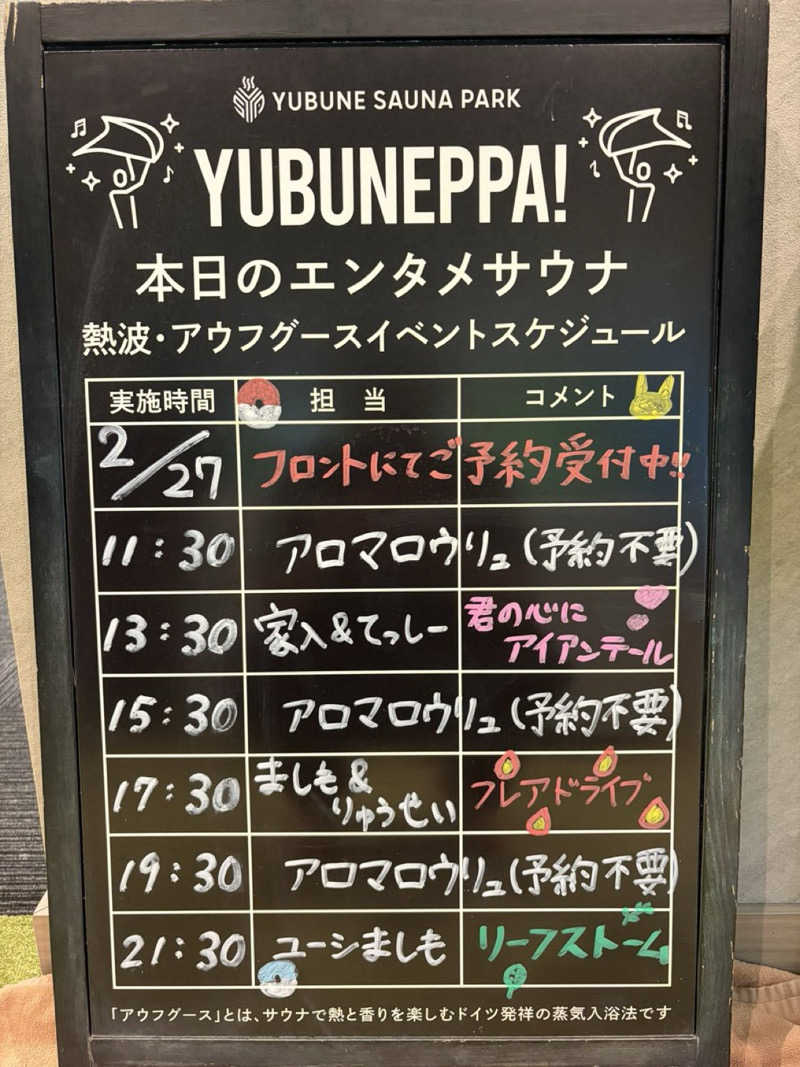 YUBUNE SAUNA PARK
YUBUNEPPA!
本日のエンタメサウナ
熱波・アウフグースイベントスケジュール
実施時間 担当 コメント
2/27 フロントにてご予約受付中!!
11:30 アロマロウリュ(予約不要)
13:30 家入&てっしー 君の心に
アイアンテール
15:30 アロマロウリュ(予約不要)
17:30 ましも&
りゅうせい フレアドライブ
19:30 アロマロウリュ(予約不要)
21:30 ユーシましも リーフストーム
「アウフグース」とは、サウナで熱と香りを楽しむドイツ発祥の蒸気入浴法です